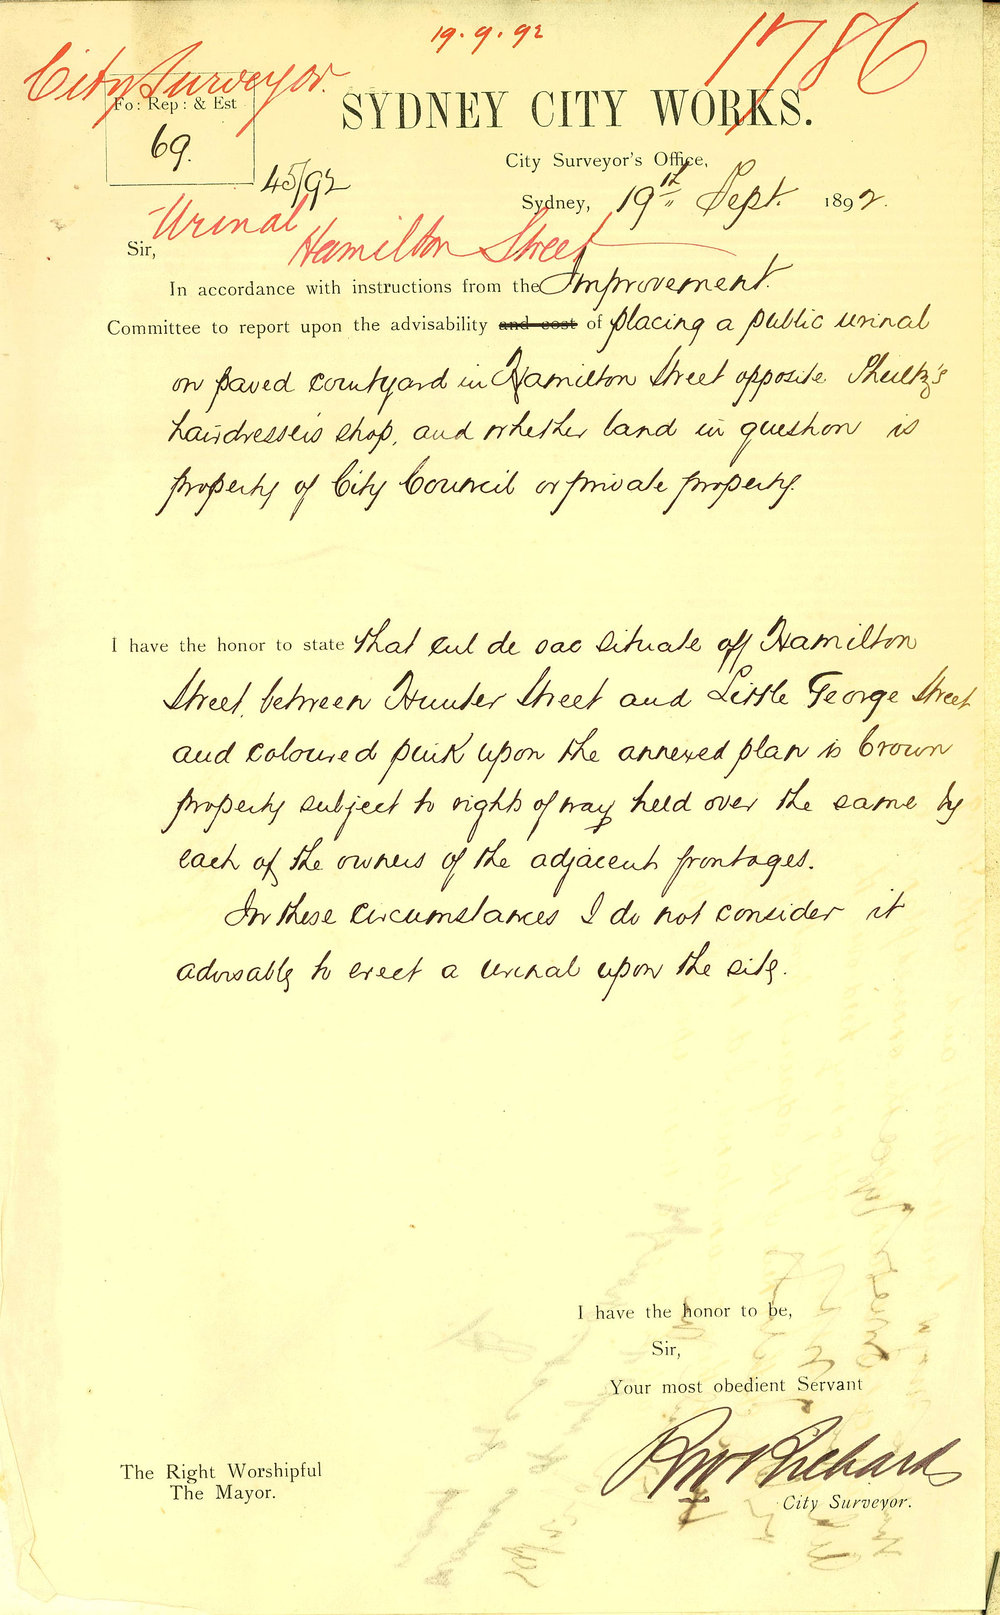 19.9.92
1786
City Surveyor.
Fo: Rep: & Est
69.
SYDNEY CITY WORKS.
City Surveyor's Office,
45/92
Sydney, 19th Sept. 1892.
Urinal
Hamilton Street
Sir,
In accordance with instructions from the Improvement.
Committee to report upon the advisability and cost of placing a public urinal
on paved courtyard in Hamilton Street opposite
hairdresser's shop, and whether land in question is
property of City Council or private property.
I have the honor to state that cul de sac situate off Hamilton
Street, between Hunter Street and Little George Street
and coloured pink upon the annexed plan is Crown
property subject to rights of way held over the same by
each of the owners of the adjacent frontages.
In these circumstances I do not consider it
advisable to erect a urinal upon the site.
I have the honor to be,
Sir,
Your most obedient Servant
Richards
City Surveyor.
The Right Worshipful
The Mayor.